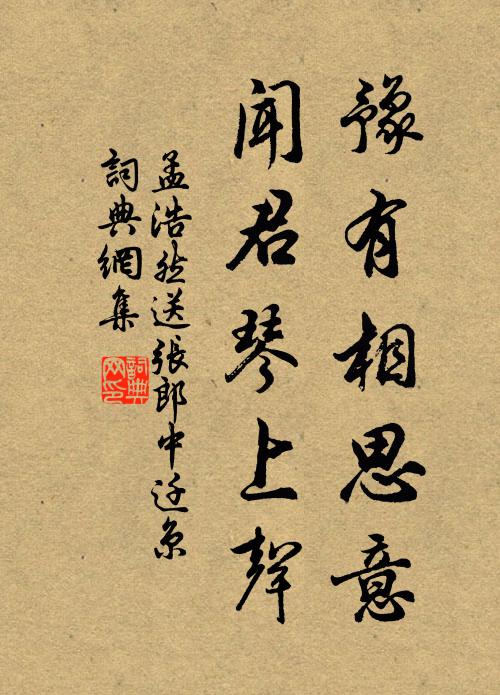 豫有相思意
聞君琴上聲
孟浩然送張郎中迁京
詞典網集
詞典
网印